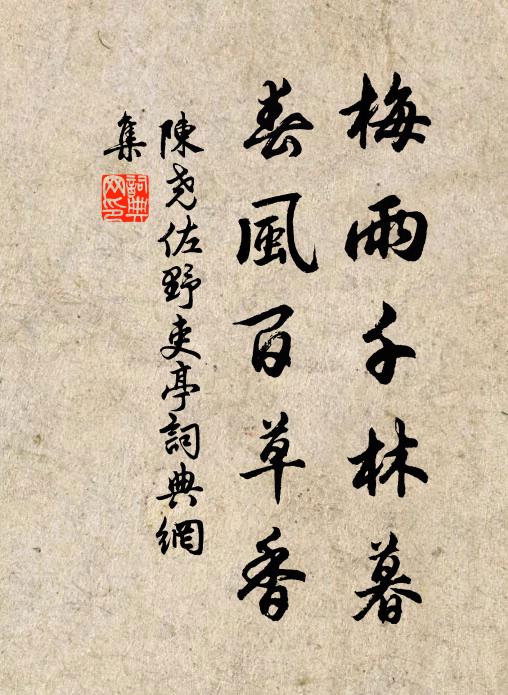 梅雨千林暮
春風百草香
陳尧佐野吏亭詞典網
集
詞典
网印